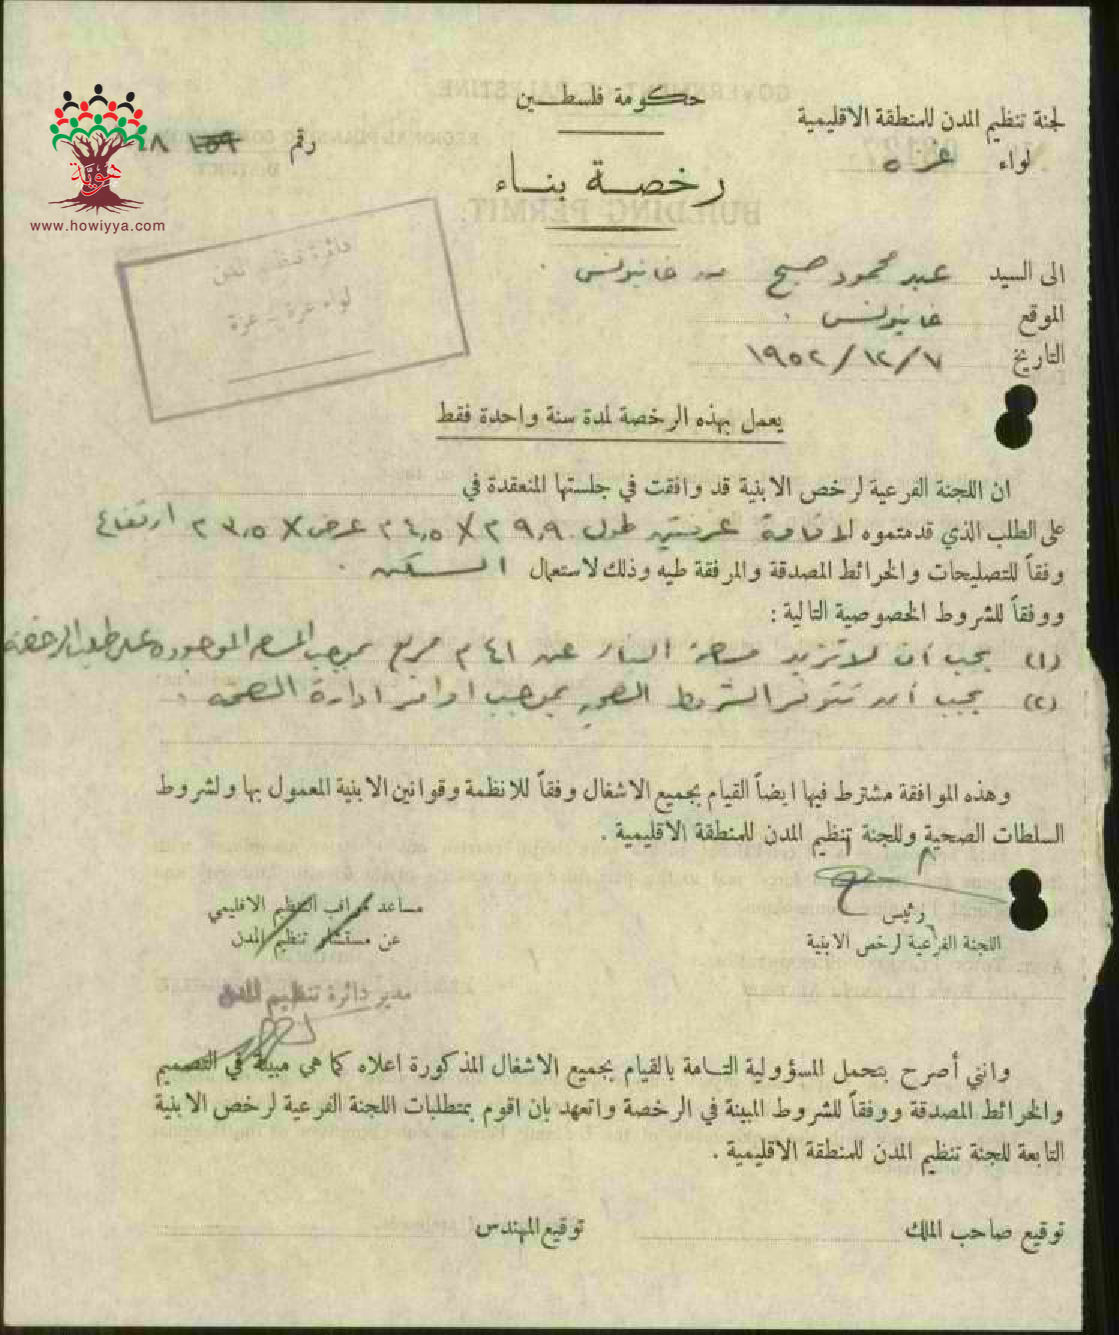 حكومة فلسطين
لجنة تنظيم المدن للمنطقة الاقليمية
لواء غزه
رقم ١٨
رخصة بناء
هوية
www.howiyya.com
دائرة تنظيم المدن
لواء غزة - غزة
الى السيد عبد محمود صبح من خانيونس .
الموقع خانيونس .
التاريخ ٧/١٢/١٩٥٢
يعمل بهذه الرخصة لمدة سنة واحدة فقط
ان اللجنة الفرعية لرخص الابنية قد وافقت في جلستها المنعقدة في
على الطلب الذي قدمتموه لاقامة طول ٩،٩ X ٤،٥ عرض X ٣،٥ ارتفاع
وفقاً للتصليحات والخرائط المصدقة والمرفقة طيه وذلك لاستعمال السكن .
ووفقاً للشروط الخصوصية التالية :
(١) يجب أن لا تزيد مساحة البناء عن ٤١ م مربع بموجب الموجوده على طلب الرخصه
(٢) يجب أن تتوفر الشروط الصحيه بموجب اوامر ادارة الصحه .
وهذه الموافقة مشترط فيها ايضاً القيام بجميع الاشغال وفقاً للانظمة وقوانين الابنية المعمول بها ولشروط
السلطات الصحية وللجنة تنظيم المدن للمنطقة الاقليمية .
رئيس
اللجنة الفرعية لرخص الابنية
مساعد مراقب التنظيم الاقليمي
عن مستشار تنظيم المدن
مدير دائرة تنظيم المدن
وانني أصرح بتحمل المسؤولية التامة بالقيام بجميع الاشغال المذكورة اعلاه كما هي مبينة في التصميم
والخرائط المصدقة ووفقاً للشروط المبينة في الرخصة واتعهد بان اقوم بمتطلبات اللجنة الفرعية لرخص الابنية
التابعة للجنة تنظيم المدن للمنطقة الاقليمية .
توقيع صاحب الملك
توقيع المهندس